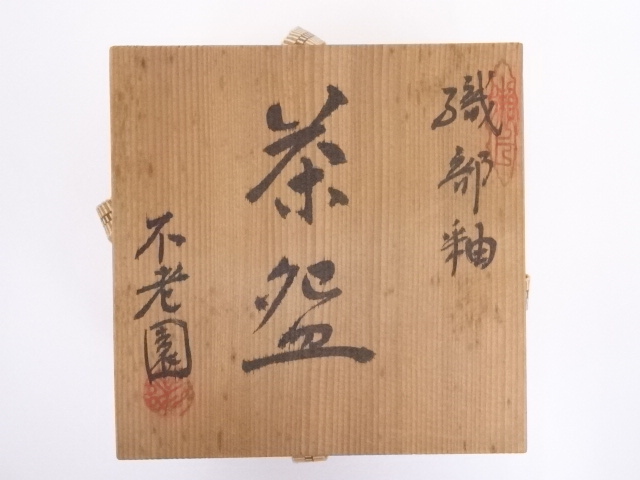 織部釉
茶盌
不老園